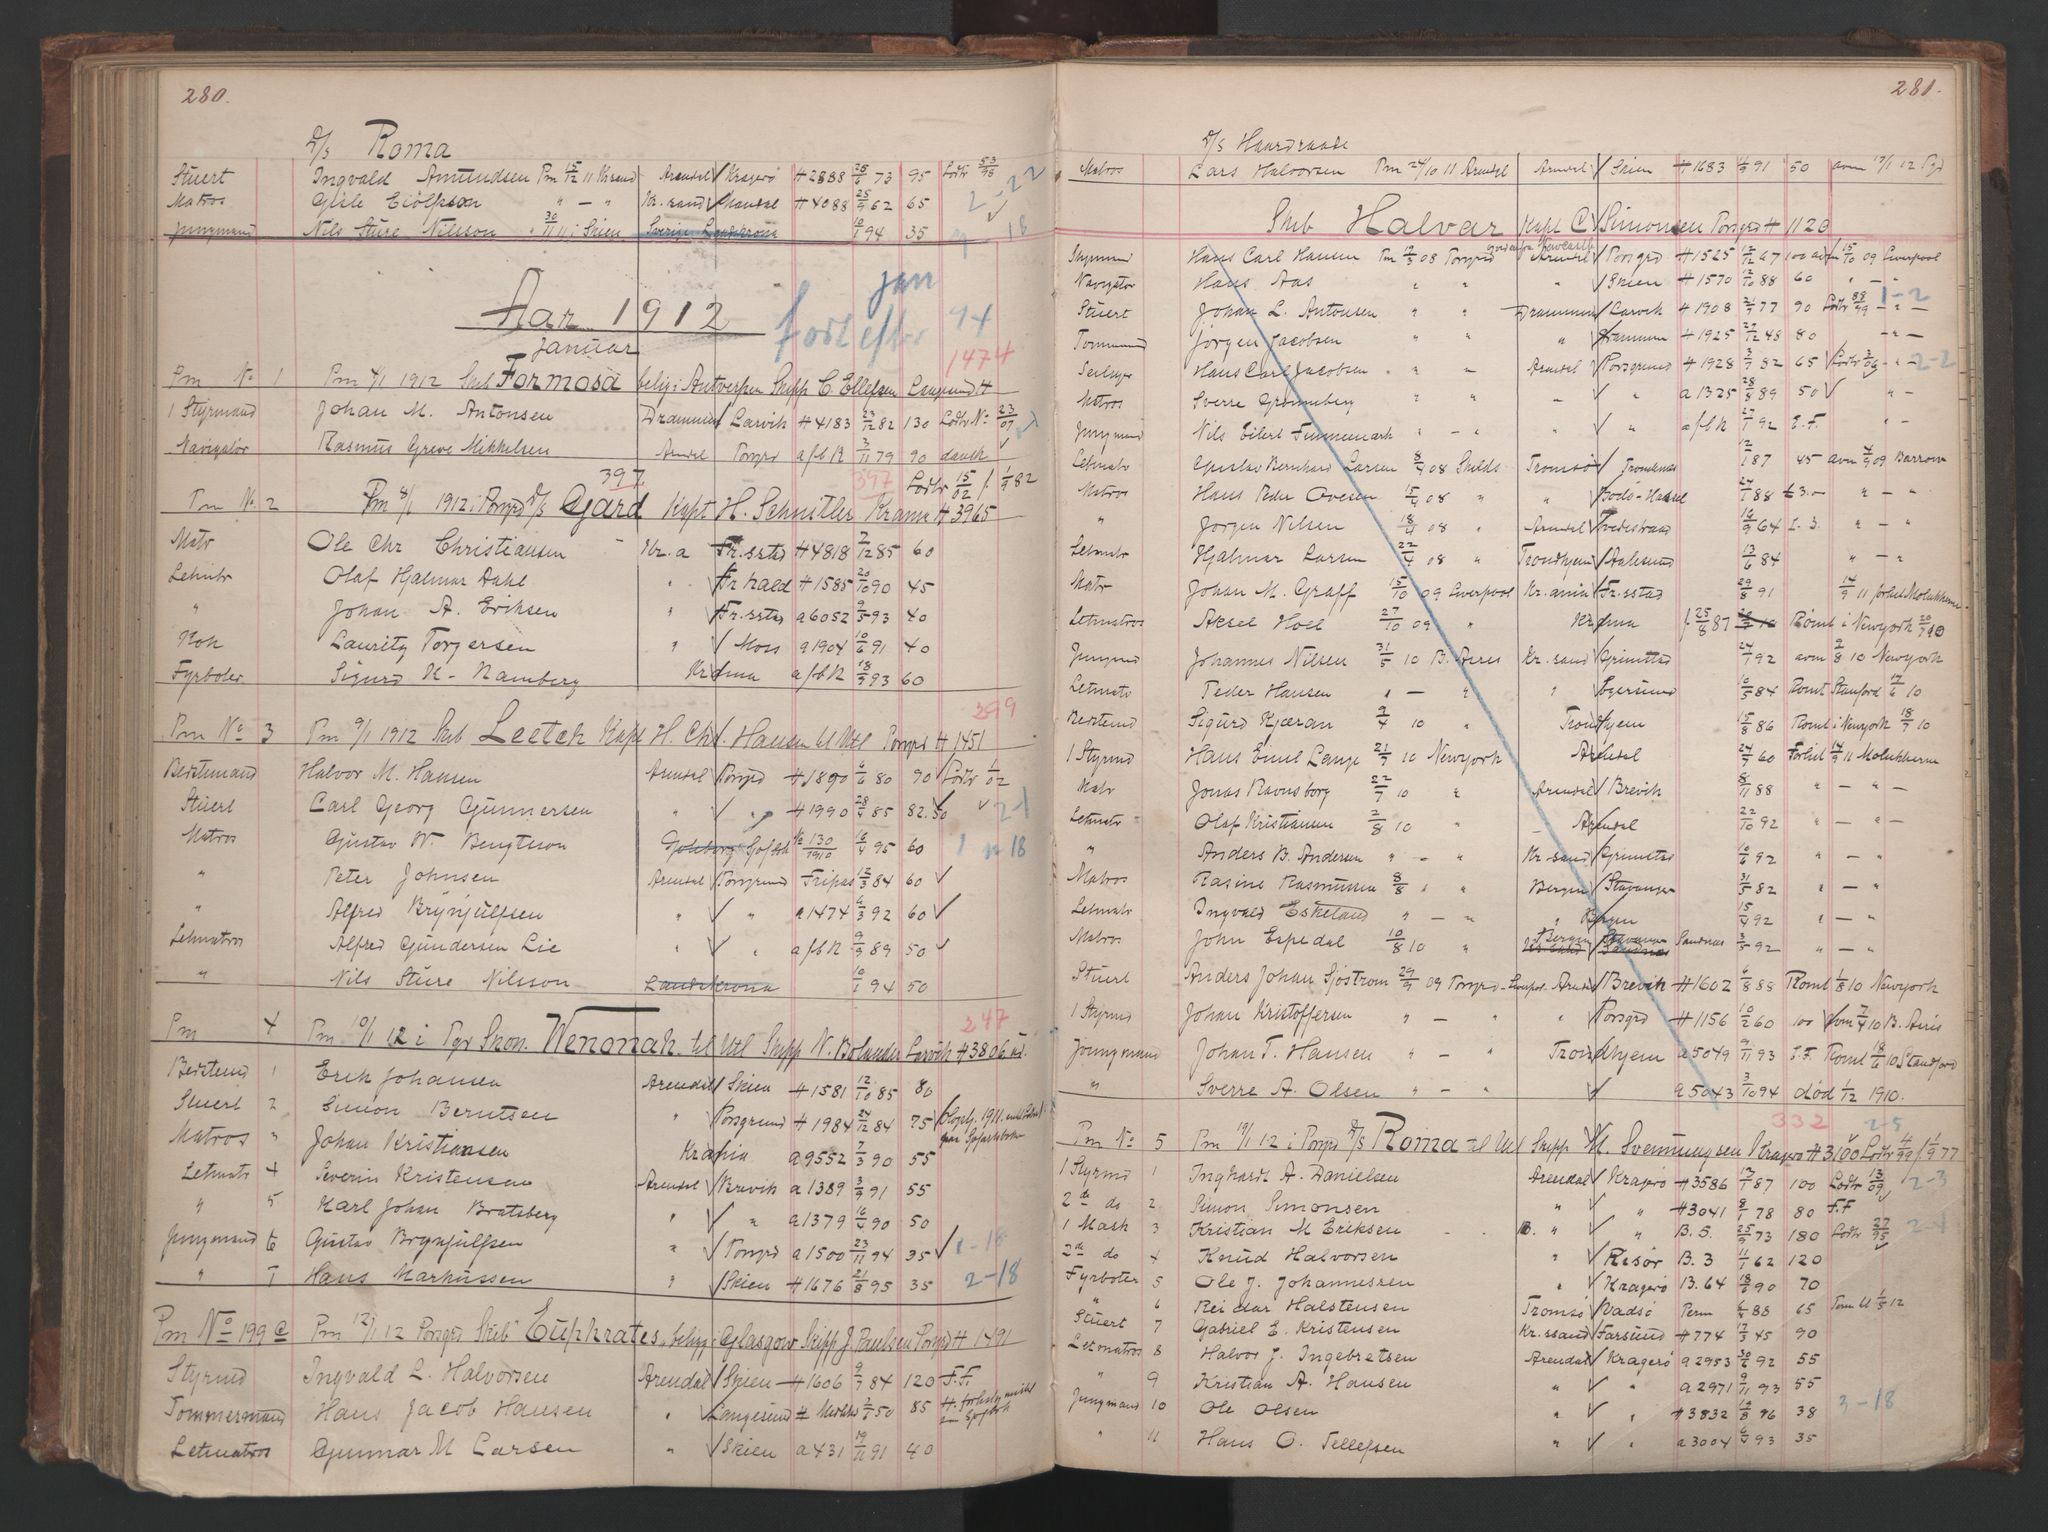 280.
D/S Roma
Stuert Ingvald Amundsen Pm 15/12 11 Krsand Arendal Kragerø H 2838 25/6 73 95 Lodtr 53/95
Matros Gisle Eiölfsson " — " Kr.sand Mandal H 4088 25/9 62 65 2-22
Jungmand Nils Sture Nilsson 30/11 11 i Skien Sverige Landskrona 10/1 94 35 18
Aar 1912
jan 94
født efter
Januar
1474
Pm No 1 Pm 4/1 1912 Skb Formosa belig. i Antwerpen Skipp C. Ellefsen Langesund H
1 Styrmand Johan M. Antonsen Drammen Larvik H 4183 23/12 82 130 Lodtr No 23/07
Navigatør Rasmus Greve Mikkelsen Arendal Porsgrd a f b R 3/11 79 90 dansk
397 397 Lodtr 15/02 f. 1/9 82
Pm No 2 Pm 8/1 1912 i Porsgrd D/S Gard Kapt H. Schnitler Krania H 3965
Matr Ole Chr Christiansen Kr.a Fr.sstad H 4818 7/12 85 60
Letmtr Olaf Hjalmar Dahl " Fr hald H 1585 20/10 90 45
" Johan A. Eriksen " Fr.sstad a 6052 9/5 93 40
Kok Lauritz Torgersen " Moss a 1904 10/6 91 40
Fyrbøter Sigurd K. Ramberg Krania a f b R 18/9 93 60
299
Pm No 3 Pm 9/1 1912 Skb Leetch Kapt H. Chr. Hansen til Utl Porsgrd H 1451
Bestemand Halvor M. Hansen Arendal Porsgrd H 1890 6/6 80 90 Lodtr 1/02
Stuert Carl Georg Gunnersen " " H 1990 28/4 85 82.50 2-1
Matros Gustav W. Bengtson Goteborg Sjøfsb No 130/1910 16/4 95 60 18
" Peter Johnsen Arendal Porsgrund Fripas 12/3 84 60
" Alfred Brynjulfsen " " a 1474 6/3 92 60
Letmatros Alfred Gundersen Lie " " a f b R 9/9 89 50
" Nils Sture Nilsson Landskrona 10/1 94 50
247
Pm 4 Pm 10/1 12 i Pgr Skon. Wenonah til Utl Skipp N. Bolander Larvik H 3806
Bestemd 1 Erik Johansen Arendal Skien H 1581 12/10 85 80
Stuert 2 Simon Berntsen " Porsgrund H 1984 24/12 84 75
Matros " Johan Kristiansen Krania a 9552 7/3 90 55
Letmatr 4 Severin Kristensen Arendal Brevik a 1389 3/9 91 55
" 5 Karl Johan Bratsberg " " a 1379 16/4 90 50
Jungmand 6 Gustav Brynjulfsen " Porsgrd a 1500 23/11 94 35 1-18
" 7 Hans Markussen " Skien H 1676 21/8 95 35 2-18
Pm No 199 c Pm 12/1 12 Porsgrd Skib Euphrates, beligg. i Glasgow Skipp J. Paulsen Porsgrd H 1491
Styrmd Ingvald L. Halvorsen Arendal Skien H 1606 9/7 84 120 F.F.
Tømmermand Hans Jacob Hansen " Langesund H 2/6 50 85
Letmatros Gunnar M Larsen " Skien a 431 19/11 91 40
281.
D/S Haardraade
Matros Lars Halvorsen Pm 24/10 11 Arendal Arendal Skien H 1683 91 50 avm 17/1 12 Pgd
Skb Halvar Kapt C. Simonsen Porsgrd H 1120
Styrmand Hans Carl Hansen Pm 12/3 08 Porsgrd Arendal Porsgrd H 1525 12/12 67 100 avm 15/10 09 Liverpool
Navigatør Hans Aas " " " Skien H 1570 12/10 88 60 " - "
Stuert Johan L. Antonsen " " Drammen Larvik H 1908 2/7 77 90 Lodtr 88/99 - " - 1-2
Tømmermd Jørgen Jacobsen " " " Drammen H 1925 27/12 48 80 - " -
Seilmager Hans Carl Jacobsen " " Arendal Porsgrund H 1928 3/7 82 65 Lodtr 3/06 - " - 2-2
Matros Sverre Grønneberg " " — " a 1325 28/8 89 50 " -
Jungmand Nils Eilert Finnemark " - " " " a f b R 27/1 92 E.F. " -
Letmatr Gustav Bernhard Larsen 8/4 08 Shields Tromsø Trondenæs 12/1 87 45 avm 4/9 09 Barrow
Matros Hans Peder Ovesen 15/4 08 " " Bodø-Hassel 24/1 88 £ 3.— " - "
" Jørgen Nilsen 18/4 08 " Arendal Tvedestrand 16/9 64 £. 3. " - "
Letmatr Hjalmar Larsen 22/4 08 " Trondhjem Aalesund 13/6 84 " - "
Matr Johan M. Graff 15/10 09 Liverpool Kr.ania Fr.sstad 29/8 91 14/9 11 forlist Molukkerne
Letmatros Aksel Hoel 27/10 09 " Krania f. 25/8 87 Rømt i Newyork 20/7 10
Jungmd Johannes Nilsen 31/5 10 B. Aires Kr.sand Grimstad 24/7 92 avm 2/8 10 Newyork
Letmatr Peder Hansen " — " " Egersund 10/5 84 Rømt Stanford 17/6 10
Bestemd Sigurd Kjæran 9/4 10 " Trondhjem 15/8 86 Rømt i Newyork 18/7 10
1 Styrmd Hans Emil Lange 21/7 10 Newyork Arendal 24/9 60 Forlist 14/9 11 Molukkerne
Matr Jonas Ravnsborg 22/7 10 " Arendal Brevik 8/11 88 " — " —
Letmatr Olaf Kristiansen 2/8 10 " Arendal 22/10 92 " — " —
" Anders B. Andersen " — " Kr.sand Grimstad 10/6 92 " — "
Matros Rasine Rasmussen 8/8 " " Bergen Stavanger 31/5 82 " — "
Letmatr Ingvald Eskeland " — " " Bergen 15/4 92 " — "
Matros John Espedal 10/8 10 " Bergen Stavanger Sandnæs 3/5 92 " — "
Stuert Anders Johan Sjøstrøm 29/9 09 Porsgrd - Liverpol. Arendal Brevik H 1602 6/8 88 Rømt 1/8 10 Newyork
1 Styrmd Johan Kristoffersen " — " " Porsgrd H 1156 10/2 60 100 avm 7/4 10 B. Aires
Joungmand Johan T. Hansen " — " Trondhjem a 5049 9/11 93 E.F. Rømt 18/6 10 Standford
" Sverre A. Olsen " — " a 5043 3/10 94 død 1/12 1910.
332 2-5
Pm No 5 Pm 19/1 12 i Porsgrd D/S Roma til Utl Skipp M. Svenningsen Kragerø H 3100 Lodtr 4/99 f. 1/9 77
1 Styrmd 1 Inghardt A. Danielsen Arendal Kragerø H 3586 17/1 87 100 Lodtr 13/09 2-3
2de do 2 Simon Simonsen " " H 3041 8/1 78 80 F.F
1 Mask 3 Kristian M Eriksen " " B. S. 25/9 73 180 Lodtr 27/95 2-4
2de do 4 Knud Halvorsen " Risør B. 3 11/1 62 120
Fyrbøter 5 Ole J. Johannessen " Kragerø B. 64 18/6 90 70
" 6 Reidar Halstensen Tromsø Vadsø Perm 6/4 88 65
Stuert 7 Gabriel E. Kristensen Kr.ssand Farsund H 774 17/3 45 90
Letmatros 8 Halvor J. Ingebretsen Arendal Kragerø a 2953 30/6 92 55
" 9 Kristian A. Hansen " " a 2971 9/11 93 55
Jungmand 10 Ole Olsen " " H 3832 12/8 96 38 3-18
" 11 Hans O. Tellefsen " " a 3004 6/4 93 35